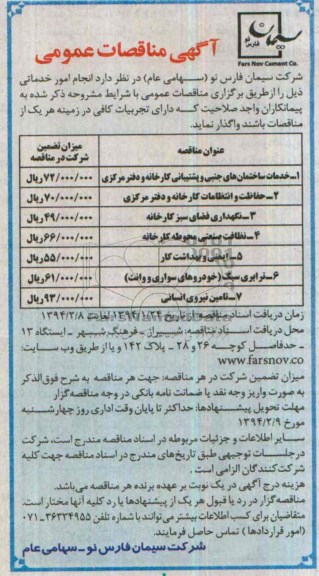 سیمان
فارس نو
Fars Nov Cement Co.
آگهی مناقصات عمومی
شرکت سیمان فارس نو (سهامی عام) در نظر دارد انجام امور خدماتی
ذیل را از طریق برگزاری مناقصات عمومی با شرایط مشروحه ذکر شده به
پیمانکاران واجد صلاحیت که دارای تجربیات کافی در زمینه هر یک از
مناقصات باشند واگذار نماید.
عنوان مناقصه | میزان تضمین شرکت در مناقصه
۱-خدمات ساختمان‌های جنبی و پشتیبانی کارخانه و دفتر مرکزی | ۷۲/۰۰۰/۰۰۰ ریال
۲-حفاظت و انتظامات کارخانه و دفتر مرکزی | ۷۰/۰۰۰/۰۰۰ ریال
۳-نگهداری فضای سبز کارخانه | ۴۹/۰۰۰/۰۰۰ ریال
۴-نظافت صنعتی محوطه کارخانه | ۶۶/۰۰۰/۰۰۰ ریال
۵-ایمنی و بهداشت کار | ۵۵/۰۰۰/۰۰۰ ریال
۶-ترابری سبک (خودروهای سواری و وانت) | ۶۱/۰۰۰/۰۰۰ ریال
۷-تامین نیروی انسانی | ۹۳/۰۰۰/۰۰۰ ریال
زمان دریافت اسناد مناقصه: از تاریخ ۱۳۹۴/۱/۲۴ لغایت ۱۳۹۴/۲/۸
محل دریافت اسناد مناقصه: شیراز - فرهنگ‌شهر - ایستگاه ۱۳
- حدفاصل کوچه ۲۶ و ۲۸ - پلاک ۱۴۲ و یا از طریق وب سایت:
www.farsnov.co
میزان تضمین شرکت در هر مناقصه: جهت هر مناقصه به شرح فوق‌الذکر
به صورت واریز وجه نقد یا ضمانت نامه بانکی در وجه مناقصه گزار
مهلت تحویل پیشنهادها: حداکثر تا پایان وقت اداری روز چهارشنبه
مورخ ۱۳۹۴/۲/۹
سایر اطلاعات و جزئیات مربوطه در اسناد مناقصه مندرج است، شرکت
در جلسات توجیهی طبق تاریخ‌های مندرج در اسناد مناقصه جهت کلیه
شرکت کنندگان الزامی است.
هزینه درج آگهی در یک نوبت بر عهده برنده هر مناقصه می‌باشد.
مناقصه‌گزار در رد یا قبول هر یک از پیشنهادها یا رد کلیه آنها مختار است.
متقاضیان برای کسب اطلاعات بیشتر می‌توانند با شماره تلفن ۳۶۳۳۴۹۵۵-۰۷۱
(امور قراردادها) تماس حاصل فرمایند.
شرکت سیمان فارس نو - سهامی عام